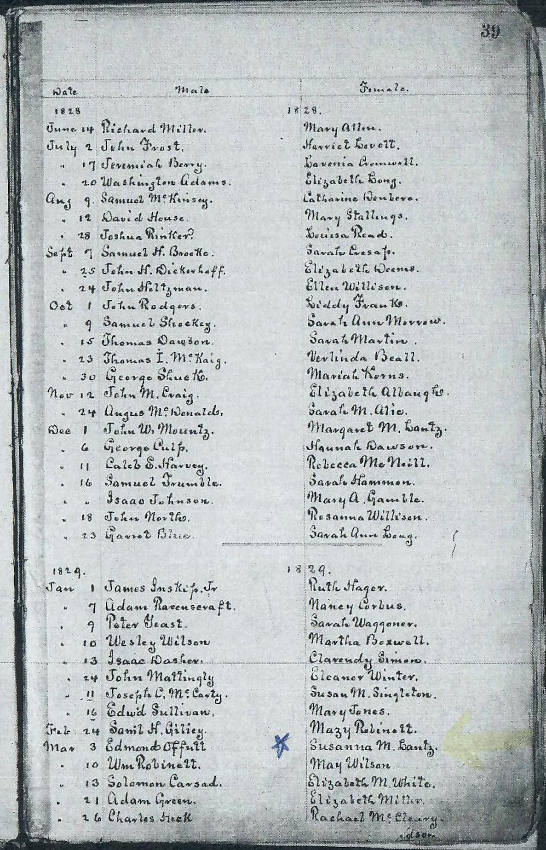 39
Date Male Female.
1828 1828.
June 14 Richard Miller. Mary Allen.
July 2 John Frost. Harriet Lovett.
" 17 Jeremiah Berry. Lavenia Cromwell.
" 20 Washington Adams. Elizabeth Long.
Aug 9. Samuel McKinsey. Catharine
" 12 David House. Mary Stallings.
" 28 Joshua Rinker. Louisa Read.
Sept 7 Samuel H. Brooke. Sarah Cresap.
" 25 John H. Dickerhoff. Elizabeth Weems.
" 24 John Hiltzman. Ellen Willison.
Oct 1 John Rodgers. Liddy Frank.
" 9 Samuel Shockey. Sarah Ann Morrow.
" 15 Thomas Dawson. Sarah Martin.
" 23 Thomas I. McKaig. Verlinda Beall.
" 30 George Shuck. Mariah Korns.
Nov 12 John M. Craig. Elizabeth Albaugh.
" 24 Angus McDonald. Sarah M. Alic.
Dec 1 John W. Mountz. Margaret M. Lantz.
" 6 George Culp. Hannah Dawson.
" 11 Caleb E. Harvey. Rebecca McNeill.
" 16 Samuel Trumble. Sarah Hammon.
" " Isaac Johnson. Mary A. Gamble.
" 18 John North. Rosanna Willison.
" 23 Garrot Blue. Sarah Ann Long.
1829. 1829.
Jan 1 James Inskip, Jr Ruth Hager.
" 7 Adam Ravenscraft. Nancy Corbus.
" 9 Peter Yeast. Sarah Waggoner.
" 10 Wesley Wilson Martha Boxwell.
" 13 Isaac Dasher. Clarendy Simon.
" 24 John Mattingly Eleanor Winter.
" 11 Joseph C. McCarty. Susan M. Singleton.
" 16 Edwd Sullivan. Mary Jones.
Feb 24 Saml H. Mazy Robinett.
Mar 3 Edmond Offutt Susanna M. Lantz.
" 10 Wm Robinett. May Wilson
" 13 Solomon Carsad. Elizabeth M. White.
" 21 Adam Green. Elizabeth Miller.
" 26 Charles Heck Rachael McCleary.